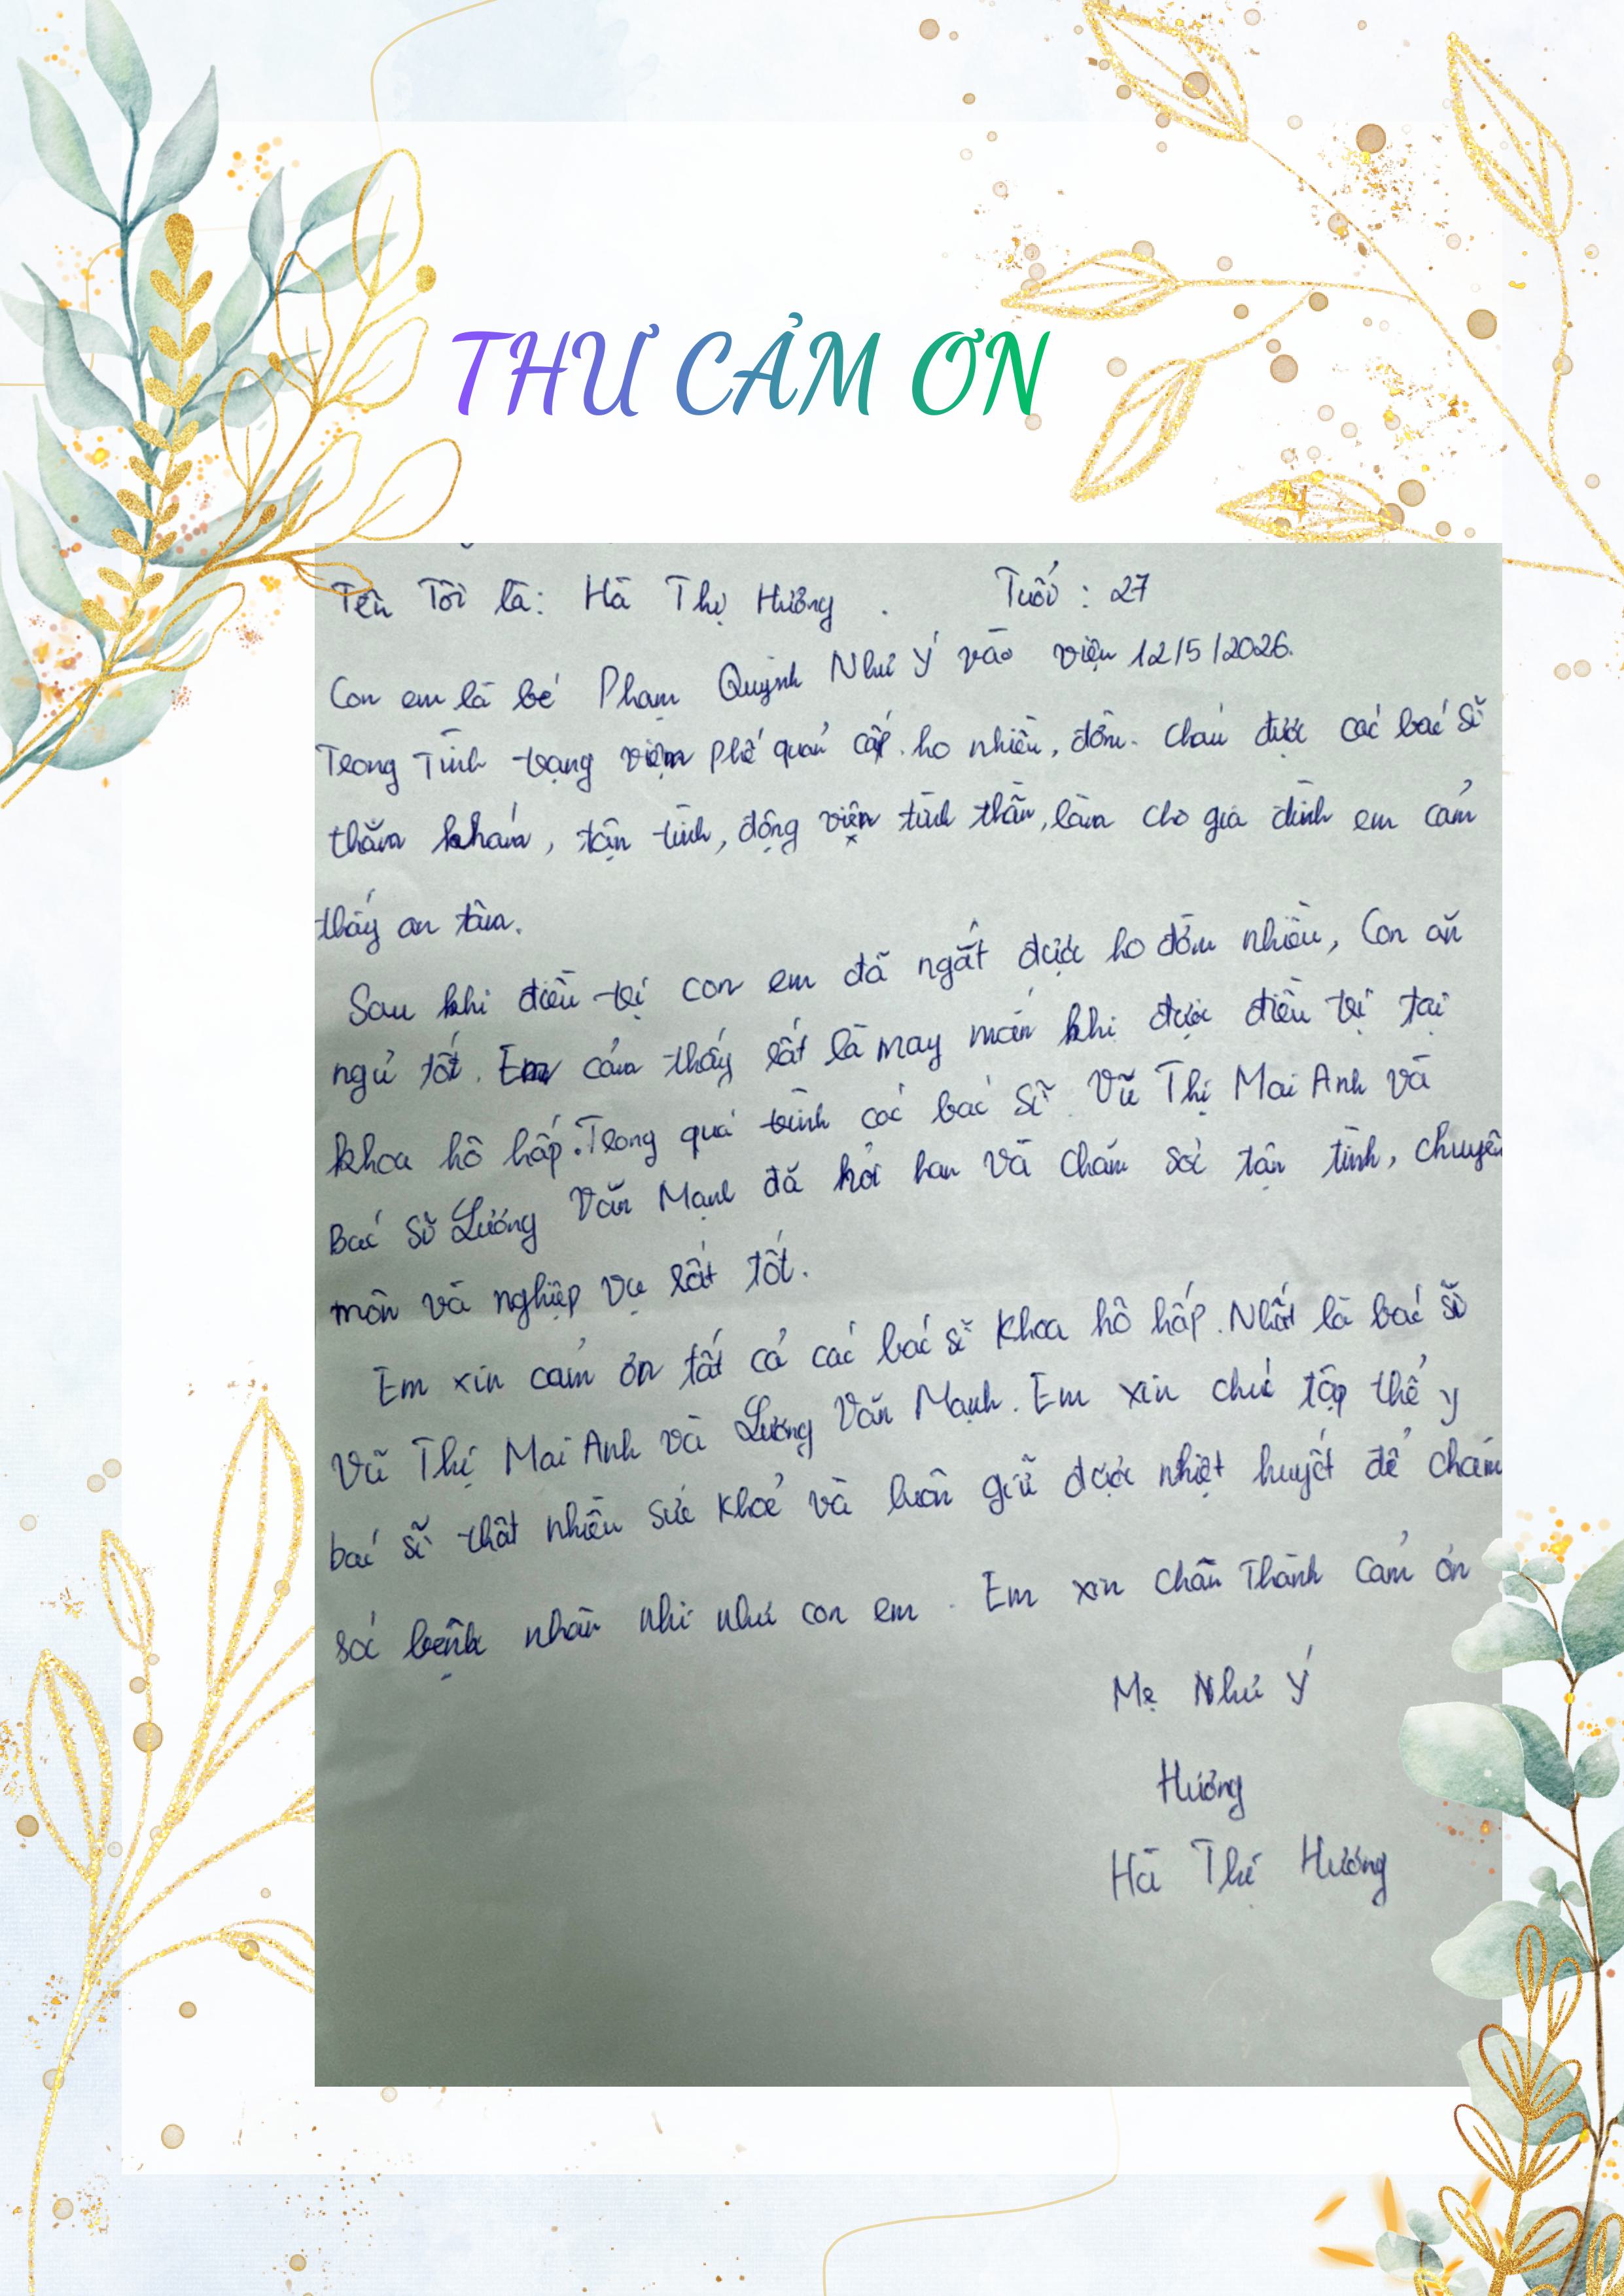 THƯ CẢM ƠN
Tên Tôi là: Hà Thị Hưởng. Tuổi: 27
Con em là bé Phạm Quỳnh Như Ý vào viện 12/5/2026.
Trong Tình trạng viêm phế quản cấp. ho nhiều, đờm. Cháu được các bác sĩ
thăm khám, tận tình, động viên tinh thần, làm cho gia đình em cảm
thấy an tâm.
Sau khi điều trị con em đã ngắt được ho đờm nhiều, Con ăn
ngủ tốt. Em cảm thấy rất là may mắn khi được điều trị tại
khoa hô hấp. Trong quá trình các bác sĩ Vũ Thị Mai Anh và
Bác sĩ Lương Văn Mạnh đã hỏi han và chăm sóc tận tình, chuyên
môn và nghiệp vụ rất tốt.
Em xin cảm ơn tất cả các bác sĩ khoa hô hấp. Nhất là bác sĩ
Vũ Thị Mai Anh và Lương Văn Mạnh. Em xin chúc tập thể y
bác sĩ thật nhiều sức khoẻ và luôn giữ được nhiệt huyết để chăm
sóc bệnh nhân nhi như con em. Em xin chân Thành cảm ơn
Mẹ Như Ý
Hưởng
Hà Thị Hưởng